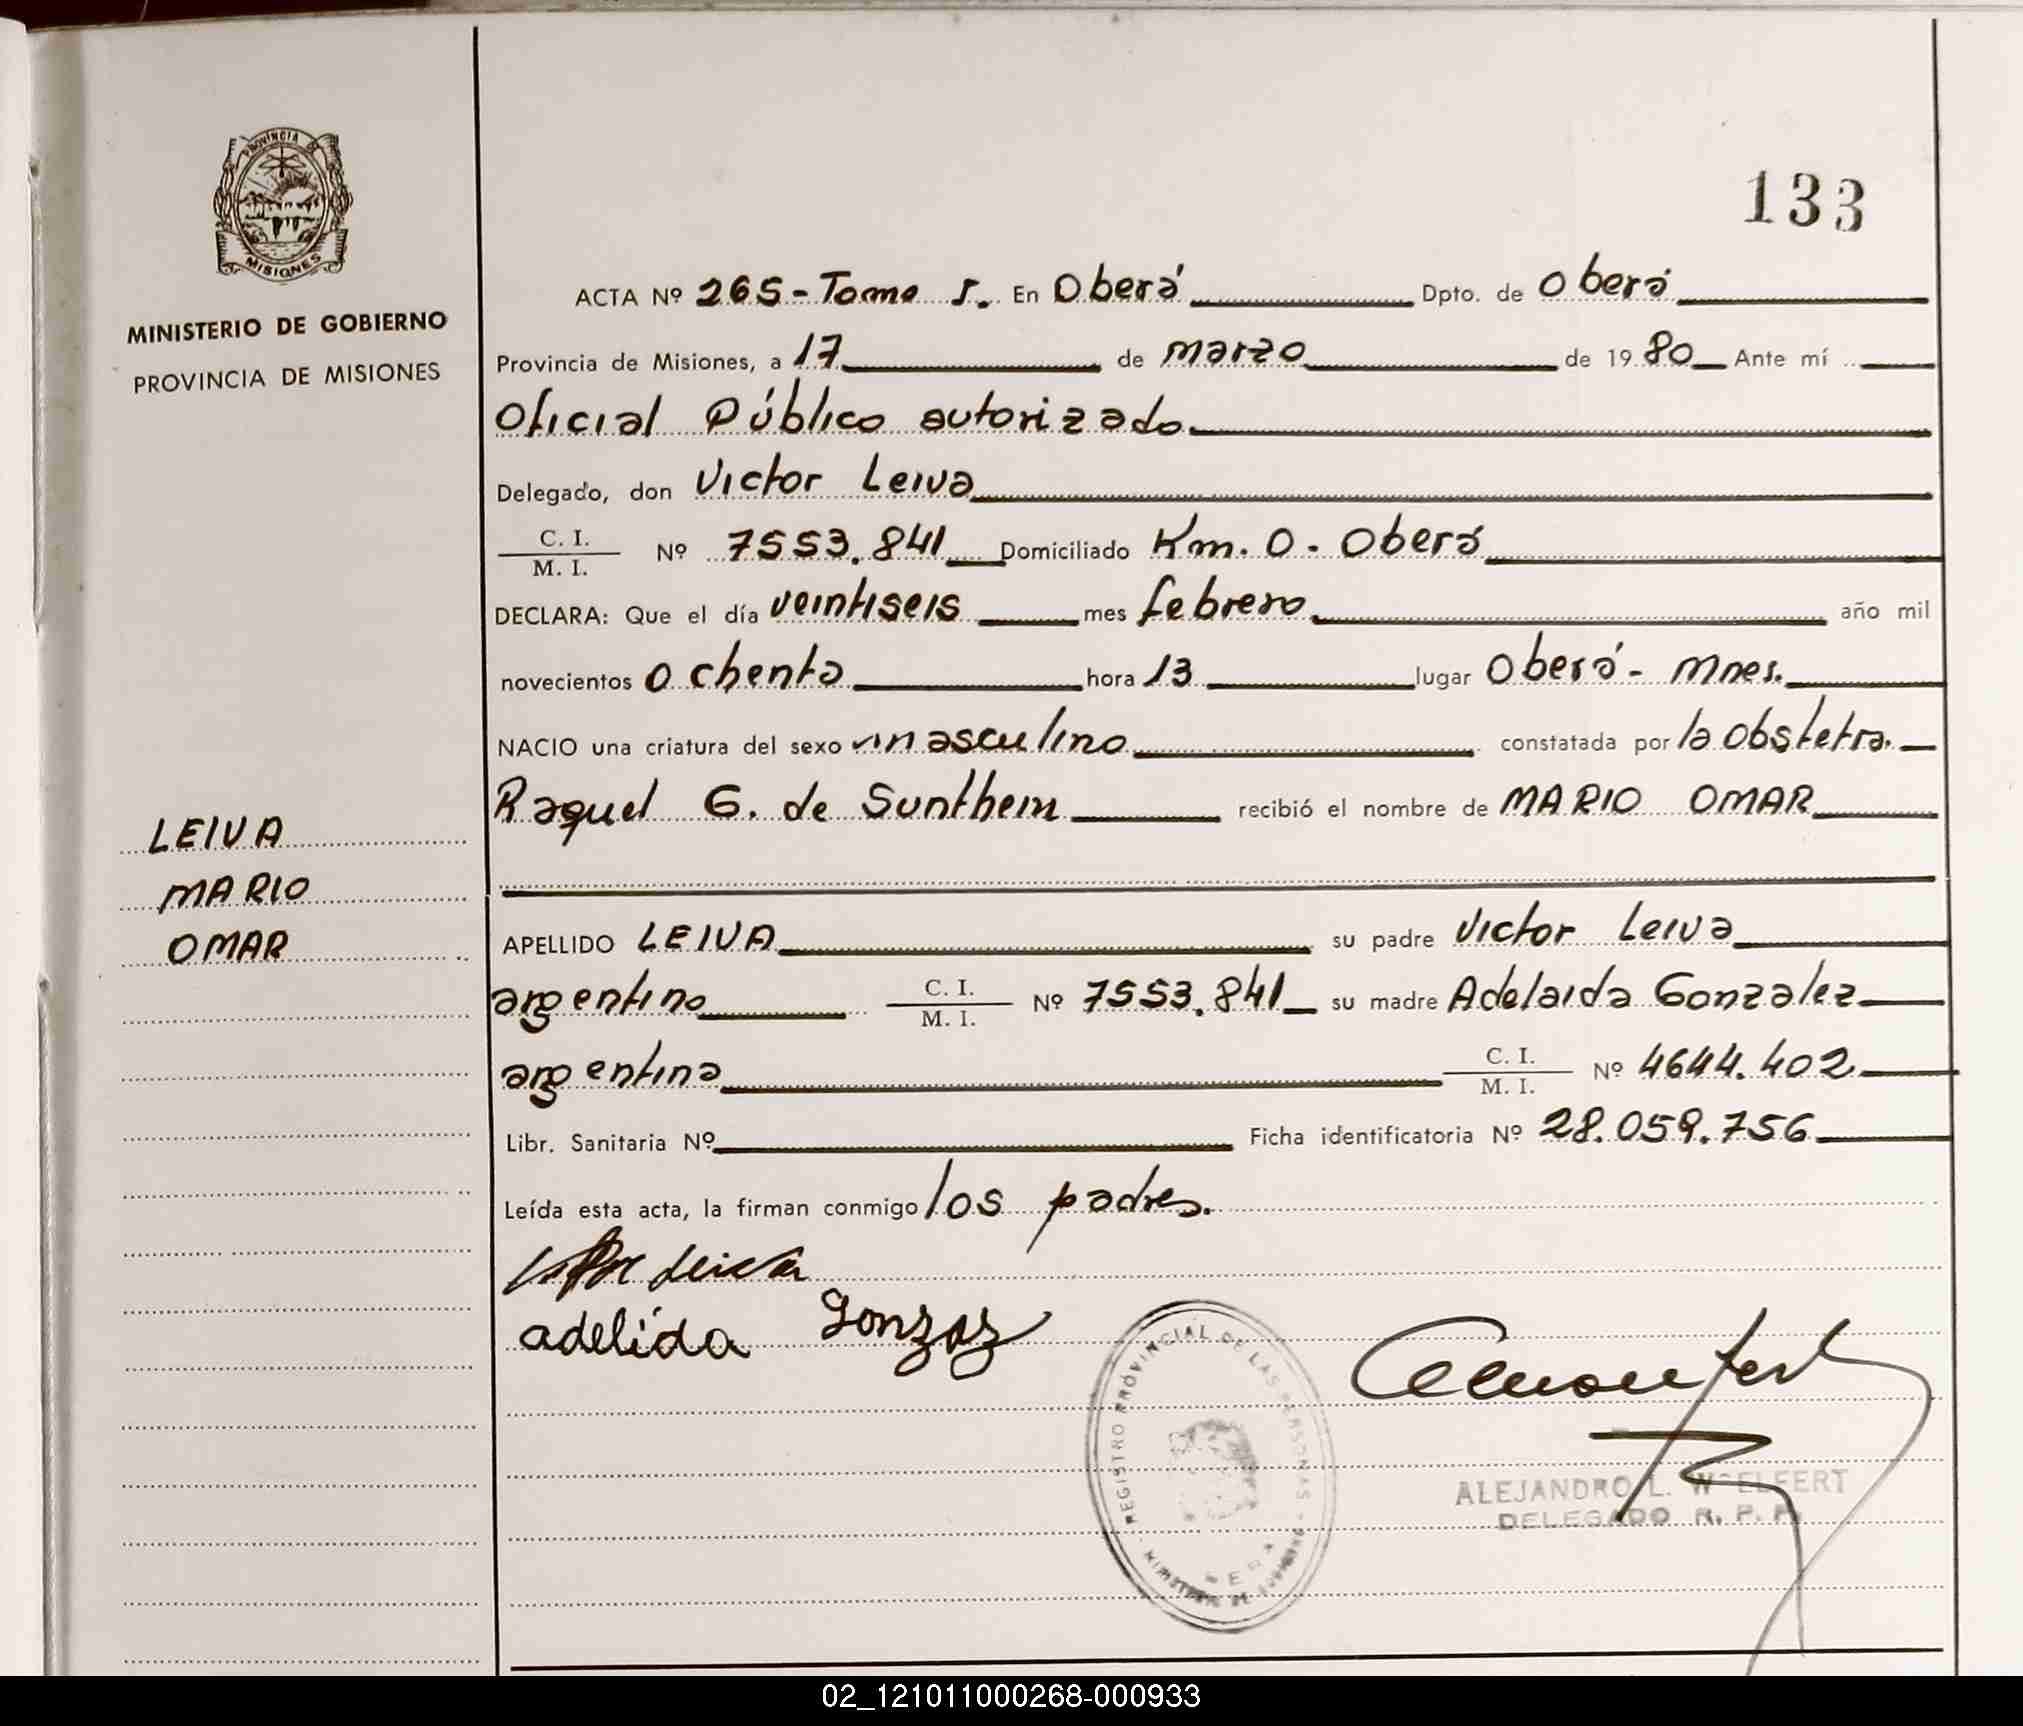 PROVINCIA DE
MISIONES
MINISTERIO DE GOBIERNO
PROVINCIA DE MISIONES
LEIVA
MARIO
OMAR
133
ACTA Nº 265 - Tomo I. En Oberá Dpto. de Oberá
Provincia de Misiones, a 17 de marzo de 1980 Ante mí
Oficial Público autorizado.
Delegado, don Victor Leiva
C. I. / M. I. Nº 7553.841 Domiciliado Km. 0 - Oberá
DECLARA: Que el día veintiseis mes febrero año mil
novecientos ochenta hora 13 lugar Oberá - Mnes.
NACIO una criatura del sexo masculino constatada por la obstetra.
Raquel G. de Sunthem recibió el nombre de MARIO OMAR
APELLIDO LEIVA su padre Victor Leiva
argentino C. I. / M. I. Nº 7553.841 su madre Adelaida Gonzalez
argentina C. I. / M. I. Nº 4644.402
Libr. Sanitaria Nº Ficha identificatoria Nº 28.059.756
Leída esta acta, la firman conmigo los padres.
Leiva
adelida Gonzaz
REGISTRO PROVINCIAL DE LAS PERSONAS
ALEJANDRO L. WOELFERT
DELEGADO R. P. P.
02_121011000268-000933